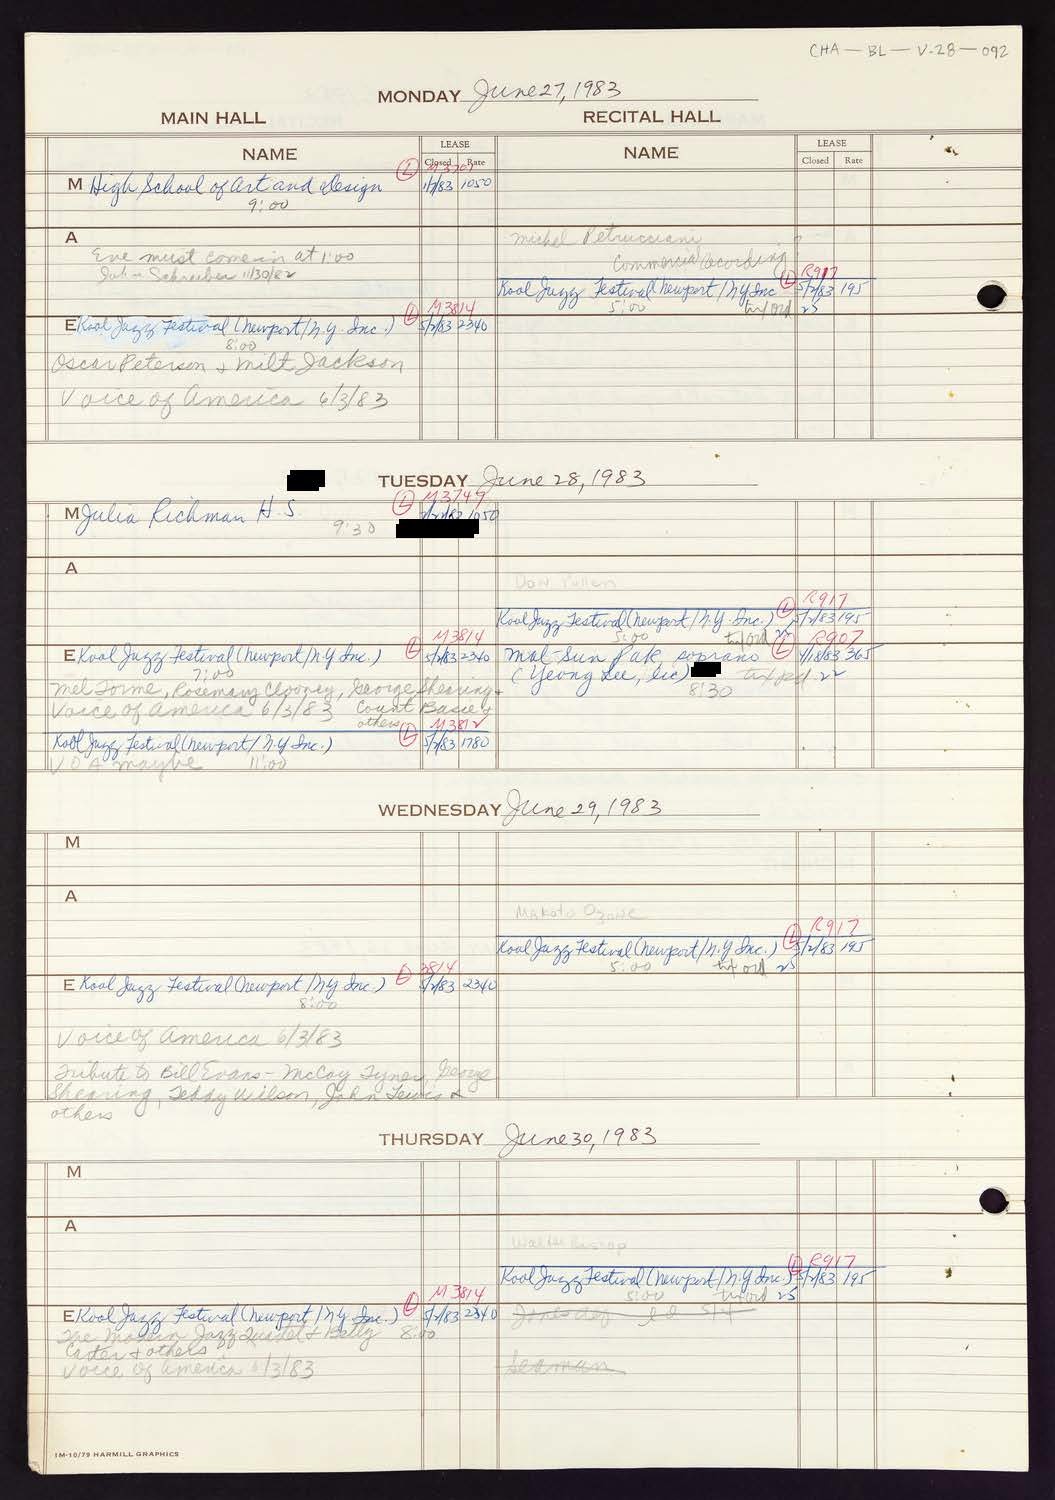 CHA - BL - V-28 - 092
MONDAY June 27, 1983
MAIN HALL
RECITAL HALL
NAME
LEASE
Closed
Rate
NAME
LEASE
Closed
Rate
L
M High School of Art and Design
1050
9:00
A
Eve must come in at 1:00
Schreiber 11/30/82
Michel Petrucciani
Commercial Recording
L R917
Kool Jazz Festival (Newport/NY Inc 5/2/83 195
5:00
25
L M3814
E Kool Jazz Festival (Newport/N.Y. Inc.) 5/2/83 2340
8:00
Oscar Peterson & Milt Jackson
Voice of America 6/3/83
TUESDAY June 28, 1983
L M3749
M Julia Richman H.S. 1050
9:30
A
Don Pullen
L R917
Kool Jazz Festival (Newport/N.Y. Inc.) 5/2/83 195
5:00
L M3814
E Kool Jazz Festival (Newport/NY Inc.) 5/2/83 2340
7:00
Mel Torme, Rosemary Clooney, George Shearing &
Voice of America 6/3/83 Count Basie &
others
L R907
Mal-Sun Pak, soprano 4/18/83 365
(Yeong Lee, lic)
22
8:30
L M3812
Kool Jazz Festival (Newport/N.Y Inc.) 5/2/83 1780
VOA maybe 11:00
WEDNESDAY June 29, 1983
M
A
Makoto Ozone
L R917
Kool Jazz Festival (Newport/N.Y. Inc.) 5/2/83 195
5:00
25
L 3814
E Kool Jazz Festival (Newport/NY Inc.) 5/2/83 2340
8:00
Voice of America 6/3/83
Tribute to Bill Evans - McCoy Tyner, George
Shearing, Teddy Wilson, John Lewis &
others
THURSDAY June 30, 1983
M
A
Walter Bishop
L R917
Kool Jazz Festival (Newport/N.Y Inc.) 5/2/83 195
5:00
25
L M3814
E Kool Jazz Festival (Newport/N.Y. Inc.) 5/2/83 2340
The Modern Jazz Quartet & Betty 8:00
Carter & others
Voice of America 6/3/83
Seaman
1M-10/79 HARMILL GRAPHICS